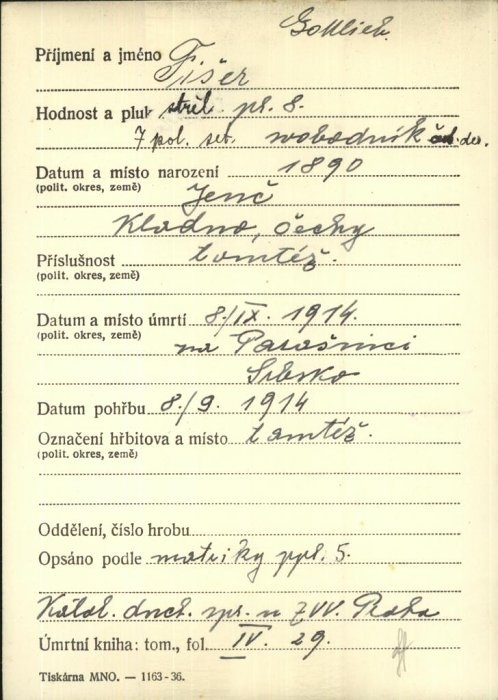 Gottlieb.
Příjmení a jméno Fišer
Hodnost a pluk střel. pl. 8.
7 pol. set. svobodník
Datum a místo narození 1890
(polit. okres, země) Jenč
Kladno, Čechy
Příslušnost tamtéž.
(polit. okres, země)
Datum a místo úmrtí 8./IX. 1914.
(polit. okres, země) na Parašnici
Srbsko
Datum pohřbu 8./9. 1914
Označení hřbitova a místo tamtéž.
(polit. okres, země)
Oddělení, číslo hrobu
Opsáno podle matriky ppl. 5.
Katol. duch. spr. u ZVV. Praha
Úmrtní kniha: tom., fol. IV. 29.
Tiskárna MNO. — 1163-36.